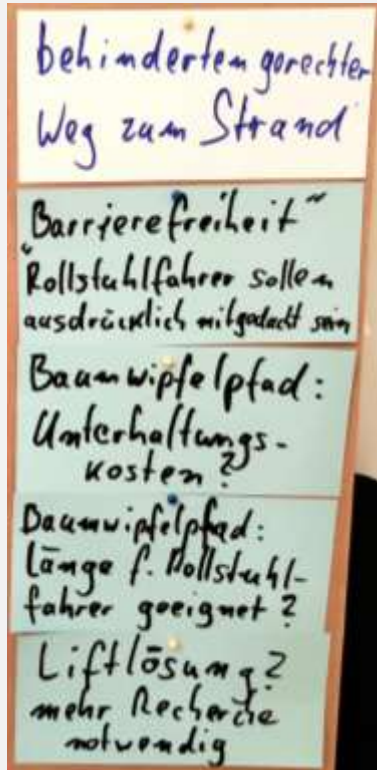 behindertengerechter
Weg zum Strand
Barrierefreiheit"
"Rollstuhlfahrer sollen
ausdrücklich mitgedacht sein
Baumwipfelpfad:
Unterhaltungs-
kosten?
Baumwipfelpfad:
Länge f. Rollstuhl-
fahrer geeignet?
Liftlösung?
mehr Recherche
notwendig